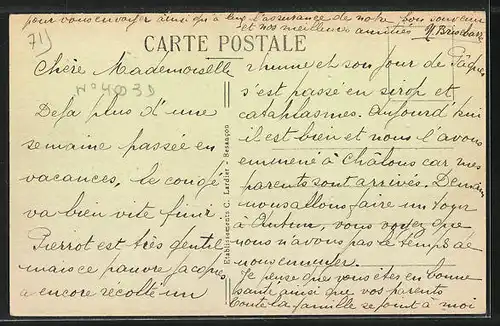 pour vous envoyer ainsi qu'à eux l'assurance de notre bon souvenir
et nos meilleures amitiés
71)
CARTE POSTALE
N° 4003D
Chère Mademoiselle
Deja plus d'une
semaine passée en
vacances, le congé
va bien vite finir.
Pierrot est très gentil
mais ce pauvre Jacques
a encore récolté un
Etablissements C. Lardier - Besançon
rhume et son jour de Pâques
s'est passé en sirop et
cataplasmes. Aujourd'hui
il est bien et nous l'avons
emmené à Châlons car mes
parents sont arrivés. Demain
nous allons faire un
à Autun, vous voyez que
nous n'avons pas le temps de
nous ennuyer.
Je pense que vous êtes en bonne
santé ainsi que vos parents
toute la famille se joint à moi